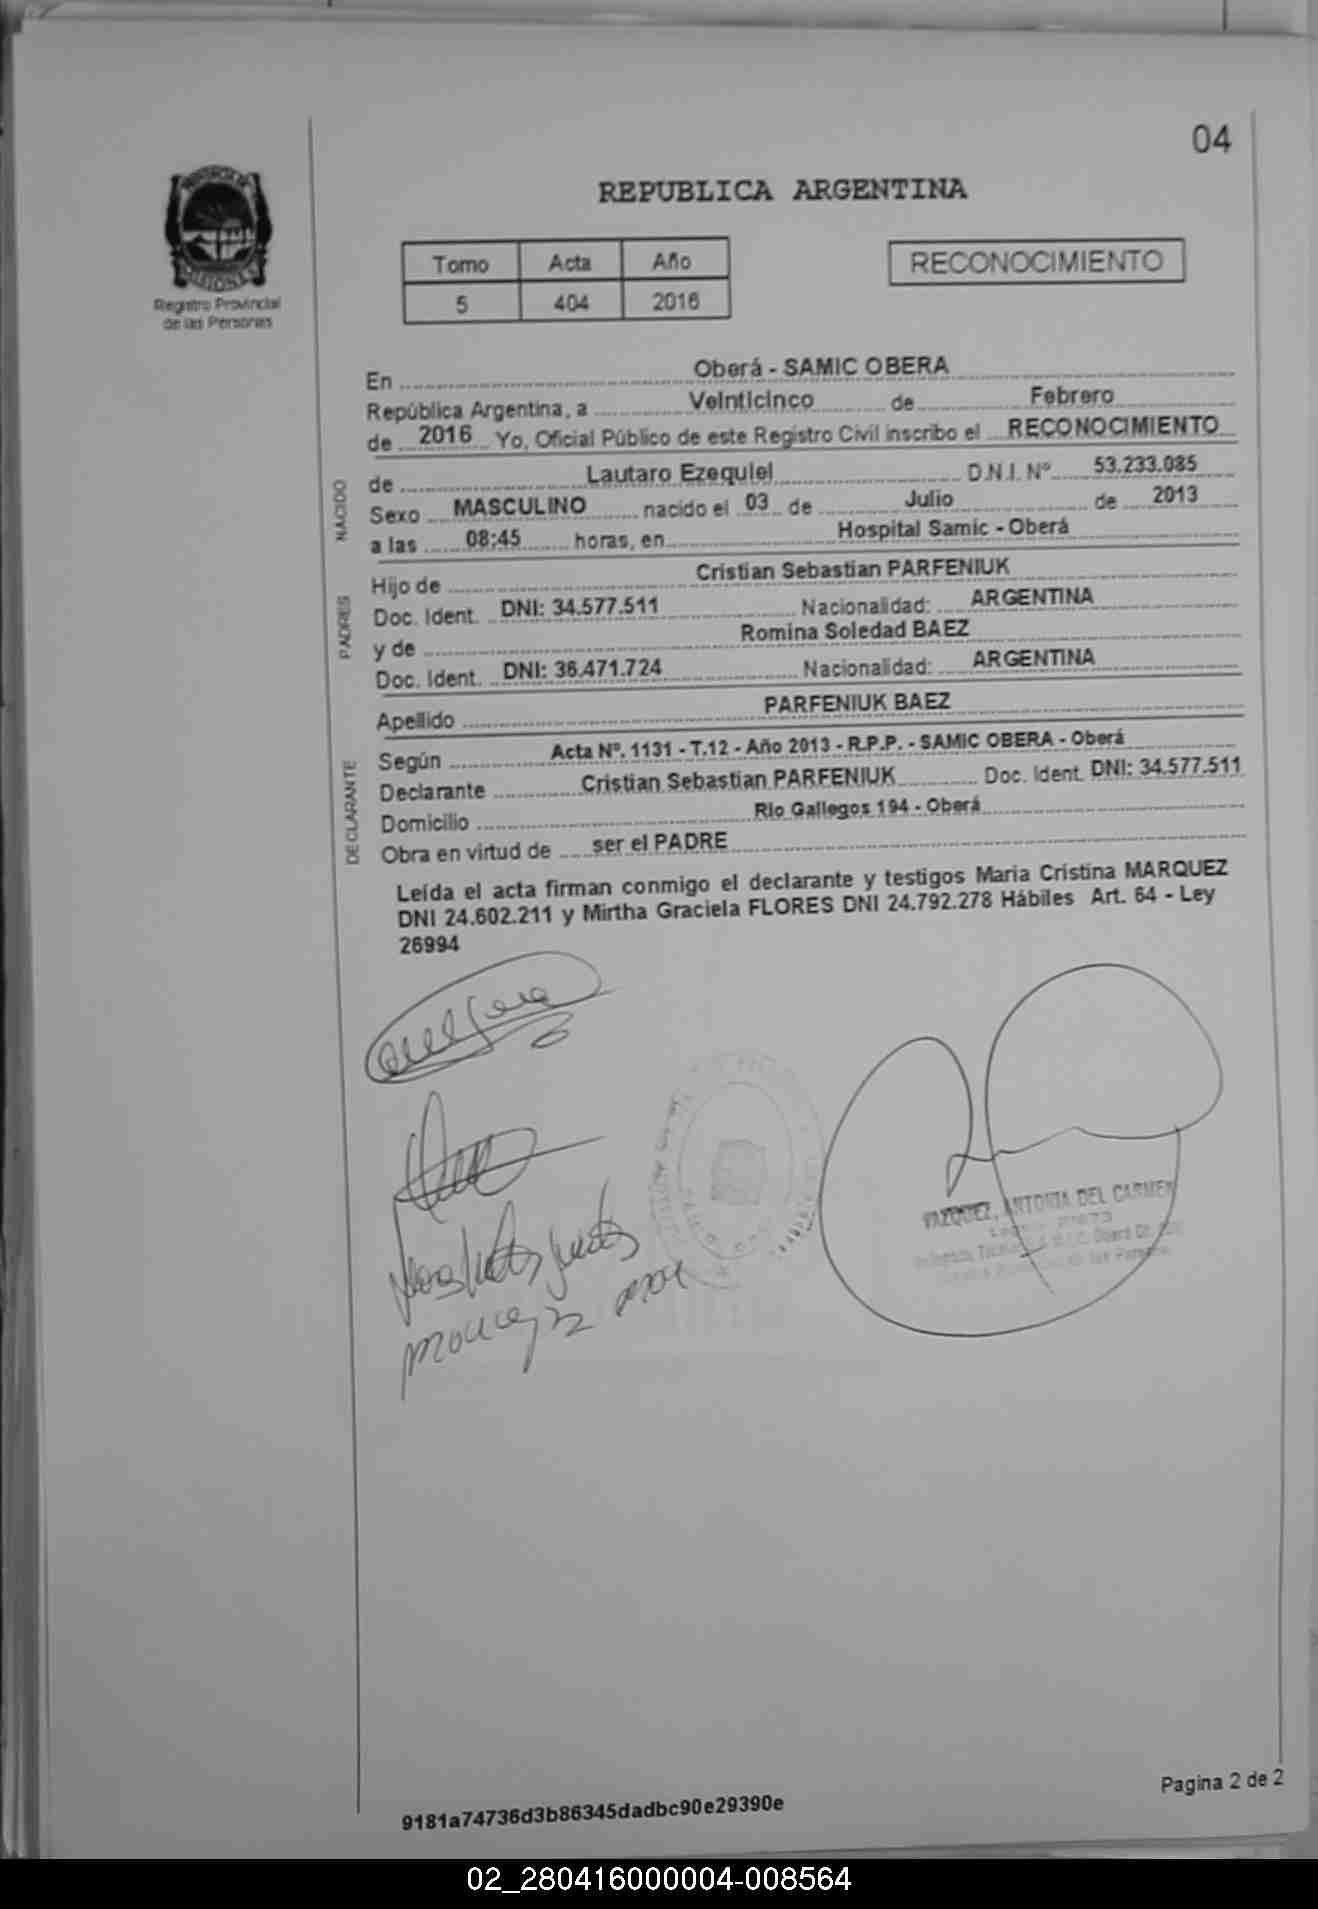 04
REPUBLICA ARGENTINA
Tomo Acta Año
5 404 2016
RECONOCIMIENTO
Registro Provincial
de las Personas
En Oberá - SAMIC OBERA
República Argentina, a Veinticinco de Febrero
de 2016 Yo, Oficial Público de este Registro Civil inscribo el RECONOCIMIENTO
NACIDO
de Lautaro Ezequiel D.N.I. Nº 53.233.085
Sexo MASCULINO nacido el 03 de Julio de 2013
a las 08:45 horas, en Hospital Samic - Oberá
PADRES
Hijo de Cristian Sebastian PARFENIUK
Doc. Ident. DNI: 34.577.511 Nacionalidad: ARGENTINA
y de Romina Soledad BAEZ
Doc. Ident. DNI: 36.471.724 Nacionalidad: ARGENTINA
Apellido PARFENIUK BAEZ
DECLARANTE
Según Acta Nº. 1131 - T.12 - Año 2013 - R.P.P. - SAMIC OBERA - Oberá
Declarante Cristian Sebastian PARFENIUK Doc. Ident. DNI: 34.577.511
Domicilio Rio Gallegos 194 - Oberá
Obra en virtud de ser el PADRE
Leída el acta firman conmigo el declarante y testigos Maria Cristina MARQUEZ
DNI 24.602.211 y Mirtha Graciela FLORES DNI 24.792.278 Hábiles Art. 64 - Ley
26994
VAZQUEZ, ANTONIA DEL CARMEN
9181a74736d3b86345dadbc90e29390e
Pagina 2 de 2
02_280416000004-008564